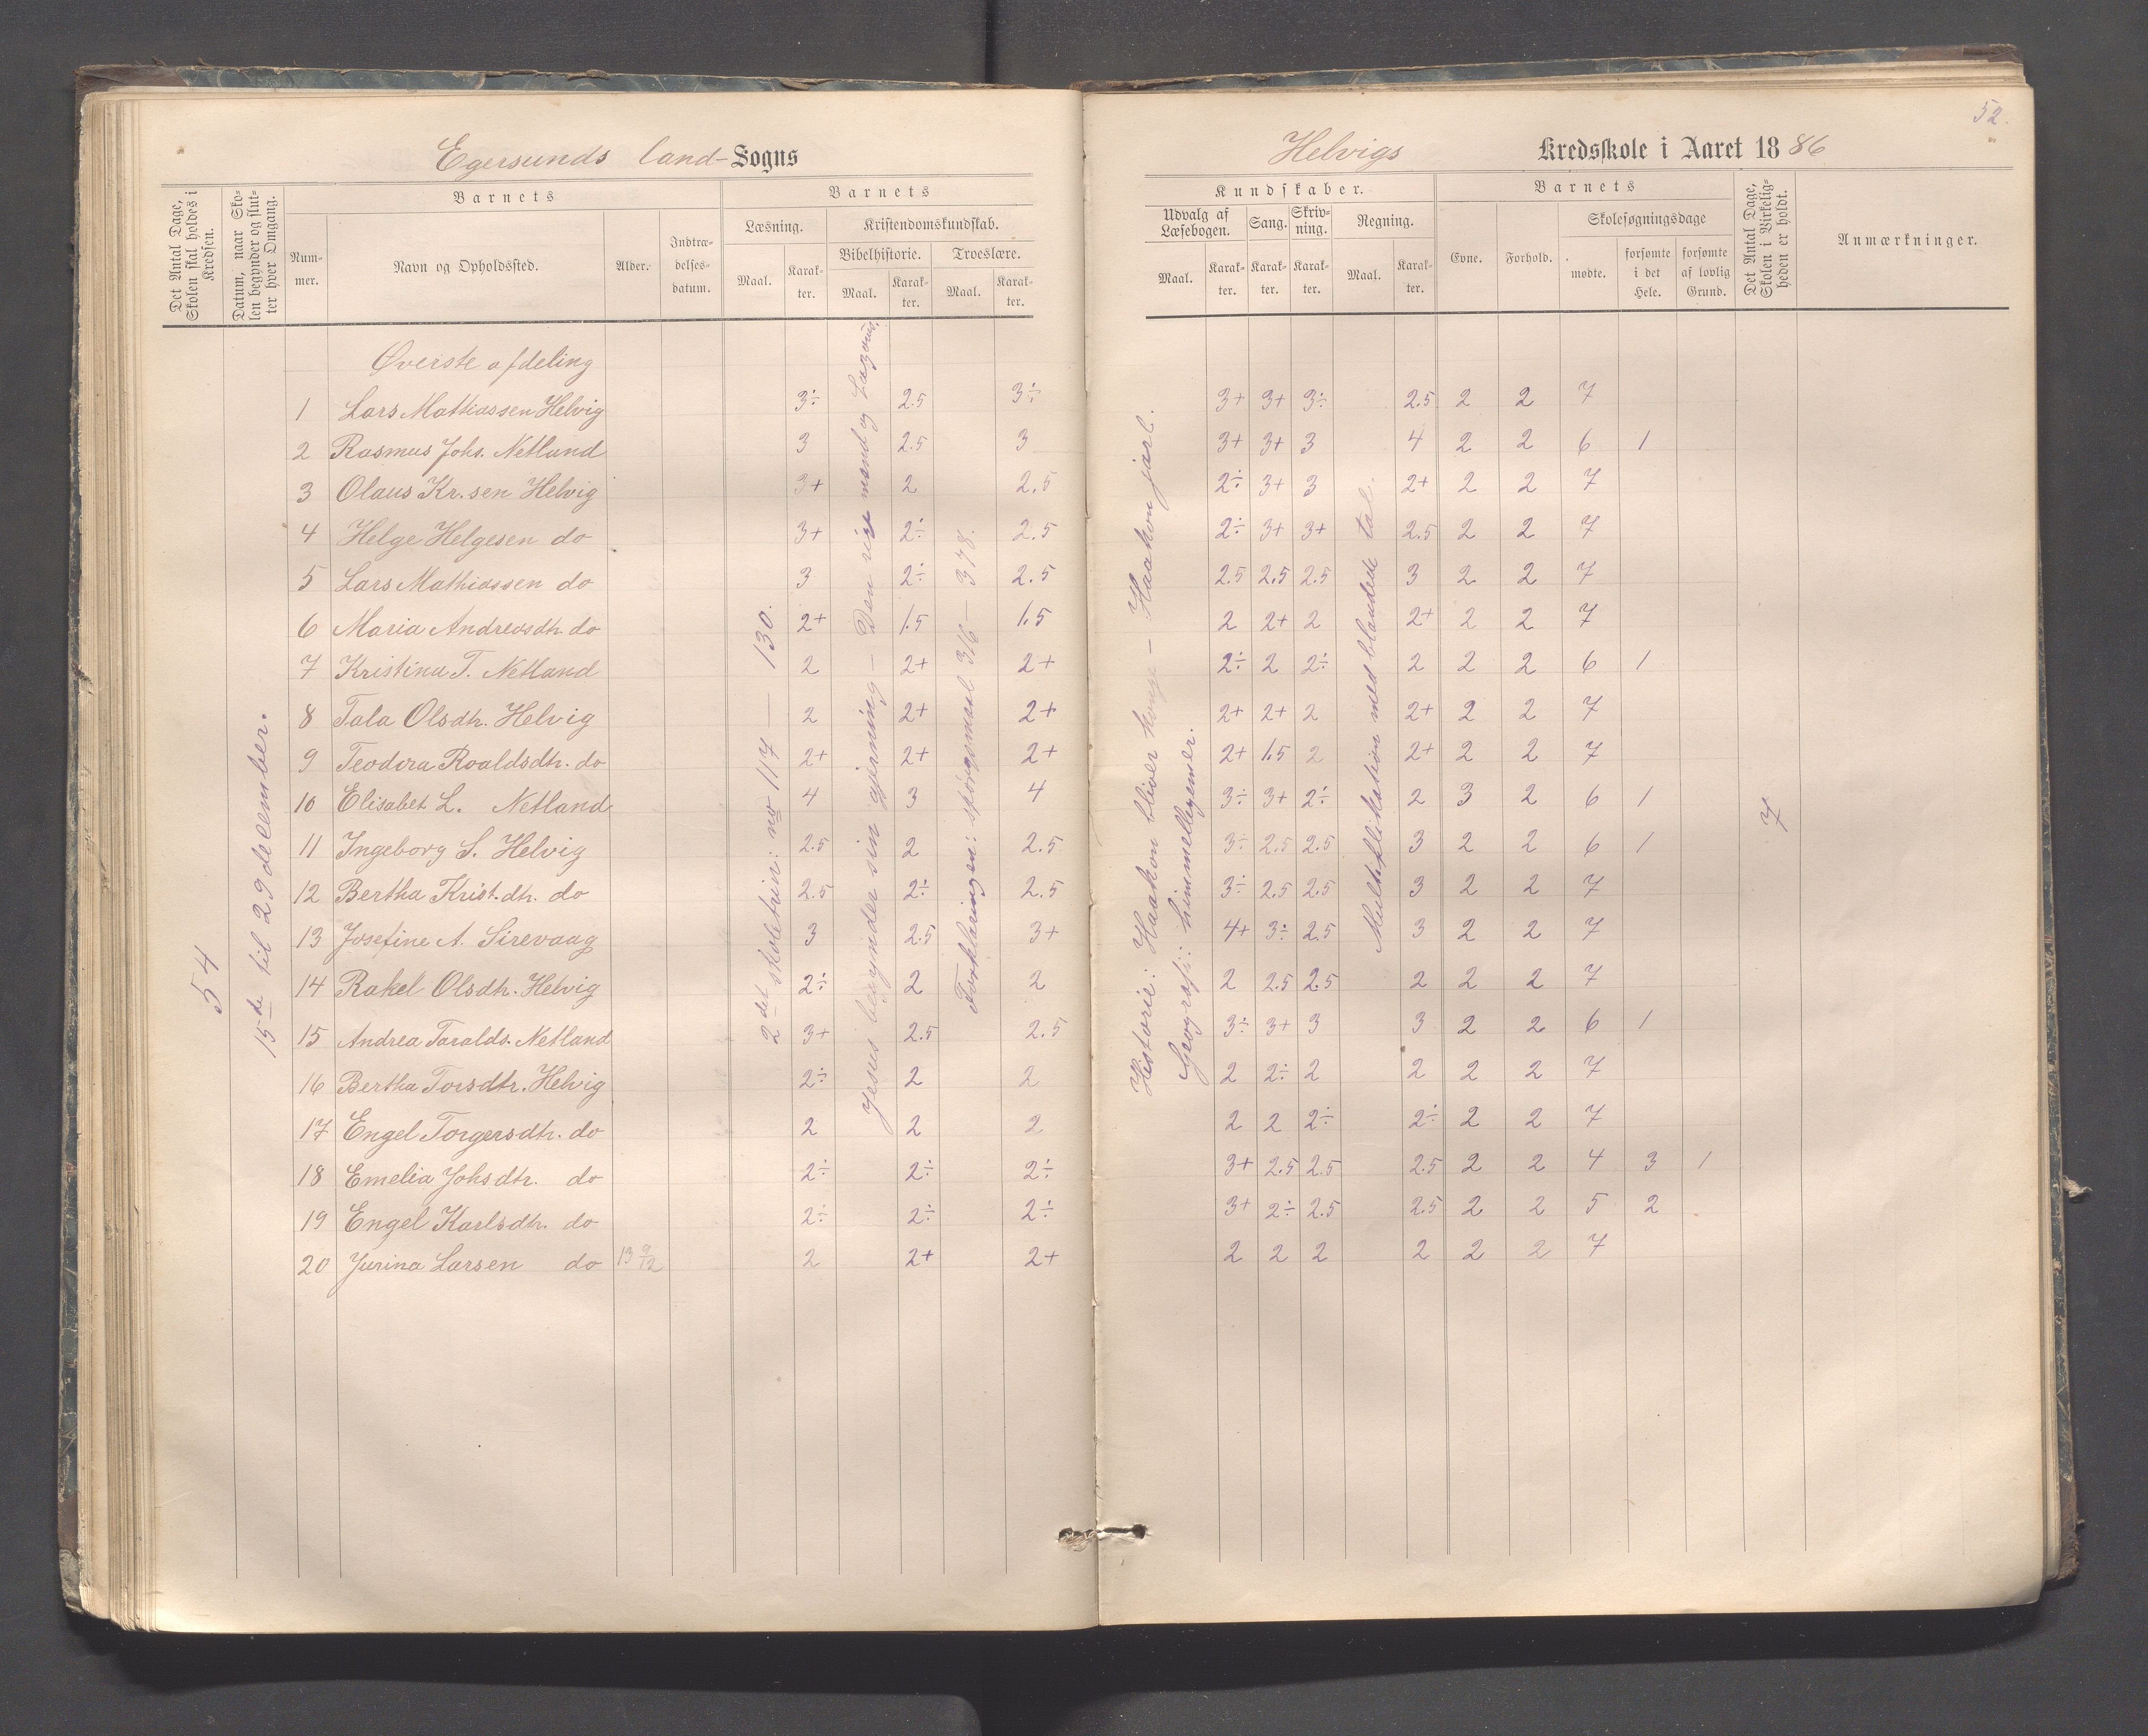 52.
Egersunds land- Sogns
Helvigs Kredsskole i Aaret 1886
Det Antal Dage, Skolen skal holdes i Kredsen.
Datum, naar Skolen begynder og slutter hver Omgang.
Barnets
Nummer.
Navn og Opholdssted.
Alder.
Indtrædelsesdatum.
Barnets
Læsning.
Maal.
Karakter.
Kristendomskundskab.
Bibelhistorie.
Maal.
Karakter.
Troeslære.
Maal.
Karakter.
Kundskaber.
Udvalg af Læsebogen.
Maal.
Karakter.
Sang.
Karakter.
Skrivning.
Karakter.
Regning.
Maal.
Karakter.
Barnets
Evne.
Forhold.
Skolesøgningsdage
mødte.
forsømte i det Hele.
forsømte af lovlig Grund.
Det Antal Dage, Skolen i Virkeligheden er holdt.
Anmærkninger.
54
15de til 29 december.
2det skoletrin: no 117 — 130.
Jesus begynder sin gjerning — Den rige mand og Lazarus.
Forklaringen: spørgsmaal 316 — 378.
Historie: Haakon bliver konge — Haakon jarl.
Geografi: himmellegemer.
Multiplikation med blandede tal.
7
Øverste afdeling
1 Lars Mathiassen Helvig 3÷ 2.5 3÷ 3+ 3+ 3÷ 2.5 2 2 7
2 Rasmus Johs. Netland 3 2.5 3 3+ 3+ 3 4 2 2 6 1
3 Olaus Kr.sen Helvig 3+ 2 2.5 2÷ 3+ 3 2+ 2 2 7
4 Helge Helgesen do 3+ 2÷ 2.5 2÷ 3+ 3+ 2.5 2 2 7
5 Lars Mathiassen do 3 2÷ 2.5 2.5 2.5 2.5 3 2 2 7
6 Maria Andreasdh. do 2+ 1.5 1.5 2 2+ 2 2+ 2 2 7
7 Kristina T. Netland 2 2+ 2+ 2÷ 2 2÷ 2 2 2 6 1
8 Tala Olsdh. Helvig 2 2+ 2+ 2+ 2+ 2 2+ 2 2 7
9 Teodora Roaldsdtr. do 2+ 2+ 2+ 2+ 1.5 2 2+ 2 2 7
10 Elisabet L. Netland 4 3 4 3÷ 3+ 2÷ 2 3 2 6 1
11 Ingeborg S. Helvig 2.5 2 2.5 3÷ 2.5 2.5 3 2 2 6 1
12 Bertha Krist.dh. do 2.5 2÷ 2.5 3÷ 2.5 2.5 3 2 2 7
13 Josefine A. Sirevaag 3 2.5 3+ 4+ 3÷ 2.5 3 2 2 7
14 Rakel Olsdh. Helvig 2÷ 2 2 2 2.5 2.5 2 2 2 7
15 Andrea Taralds. Netland 3+ 2.5 2.5 3÷ 3+ 3 3 2 2 6 1
16 Bertha Torsdtr. Helvig 2÷ 2 2 2 2÷ 2 2 2 2 7
17 Engel Torgersdh. do 2 2 2 2 2 2÷ 2÷ 2 2 7
18 Emelia Johsdtr. do 2÷ 2÷ 2÷ 3+ 2.5 2.5 2.5 2 2 4 3 1
19 Engel Karlsdh. do 2÷ 2÷ 2÷ 3+ 2÷ 2.5 2.5 2 2 5 2
20 Jurina Larsen do 13 9/12 2 2+ 2+ 2 2 2 2 2 2 7